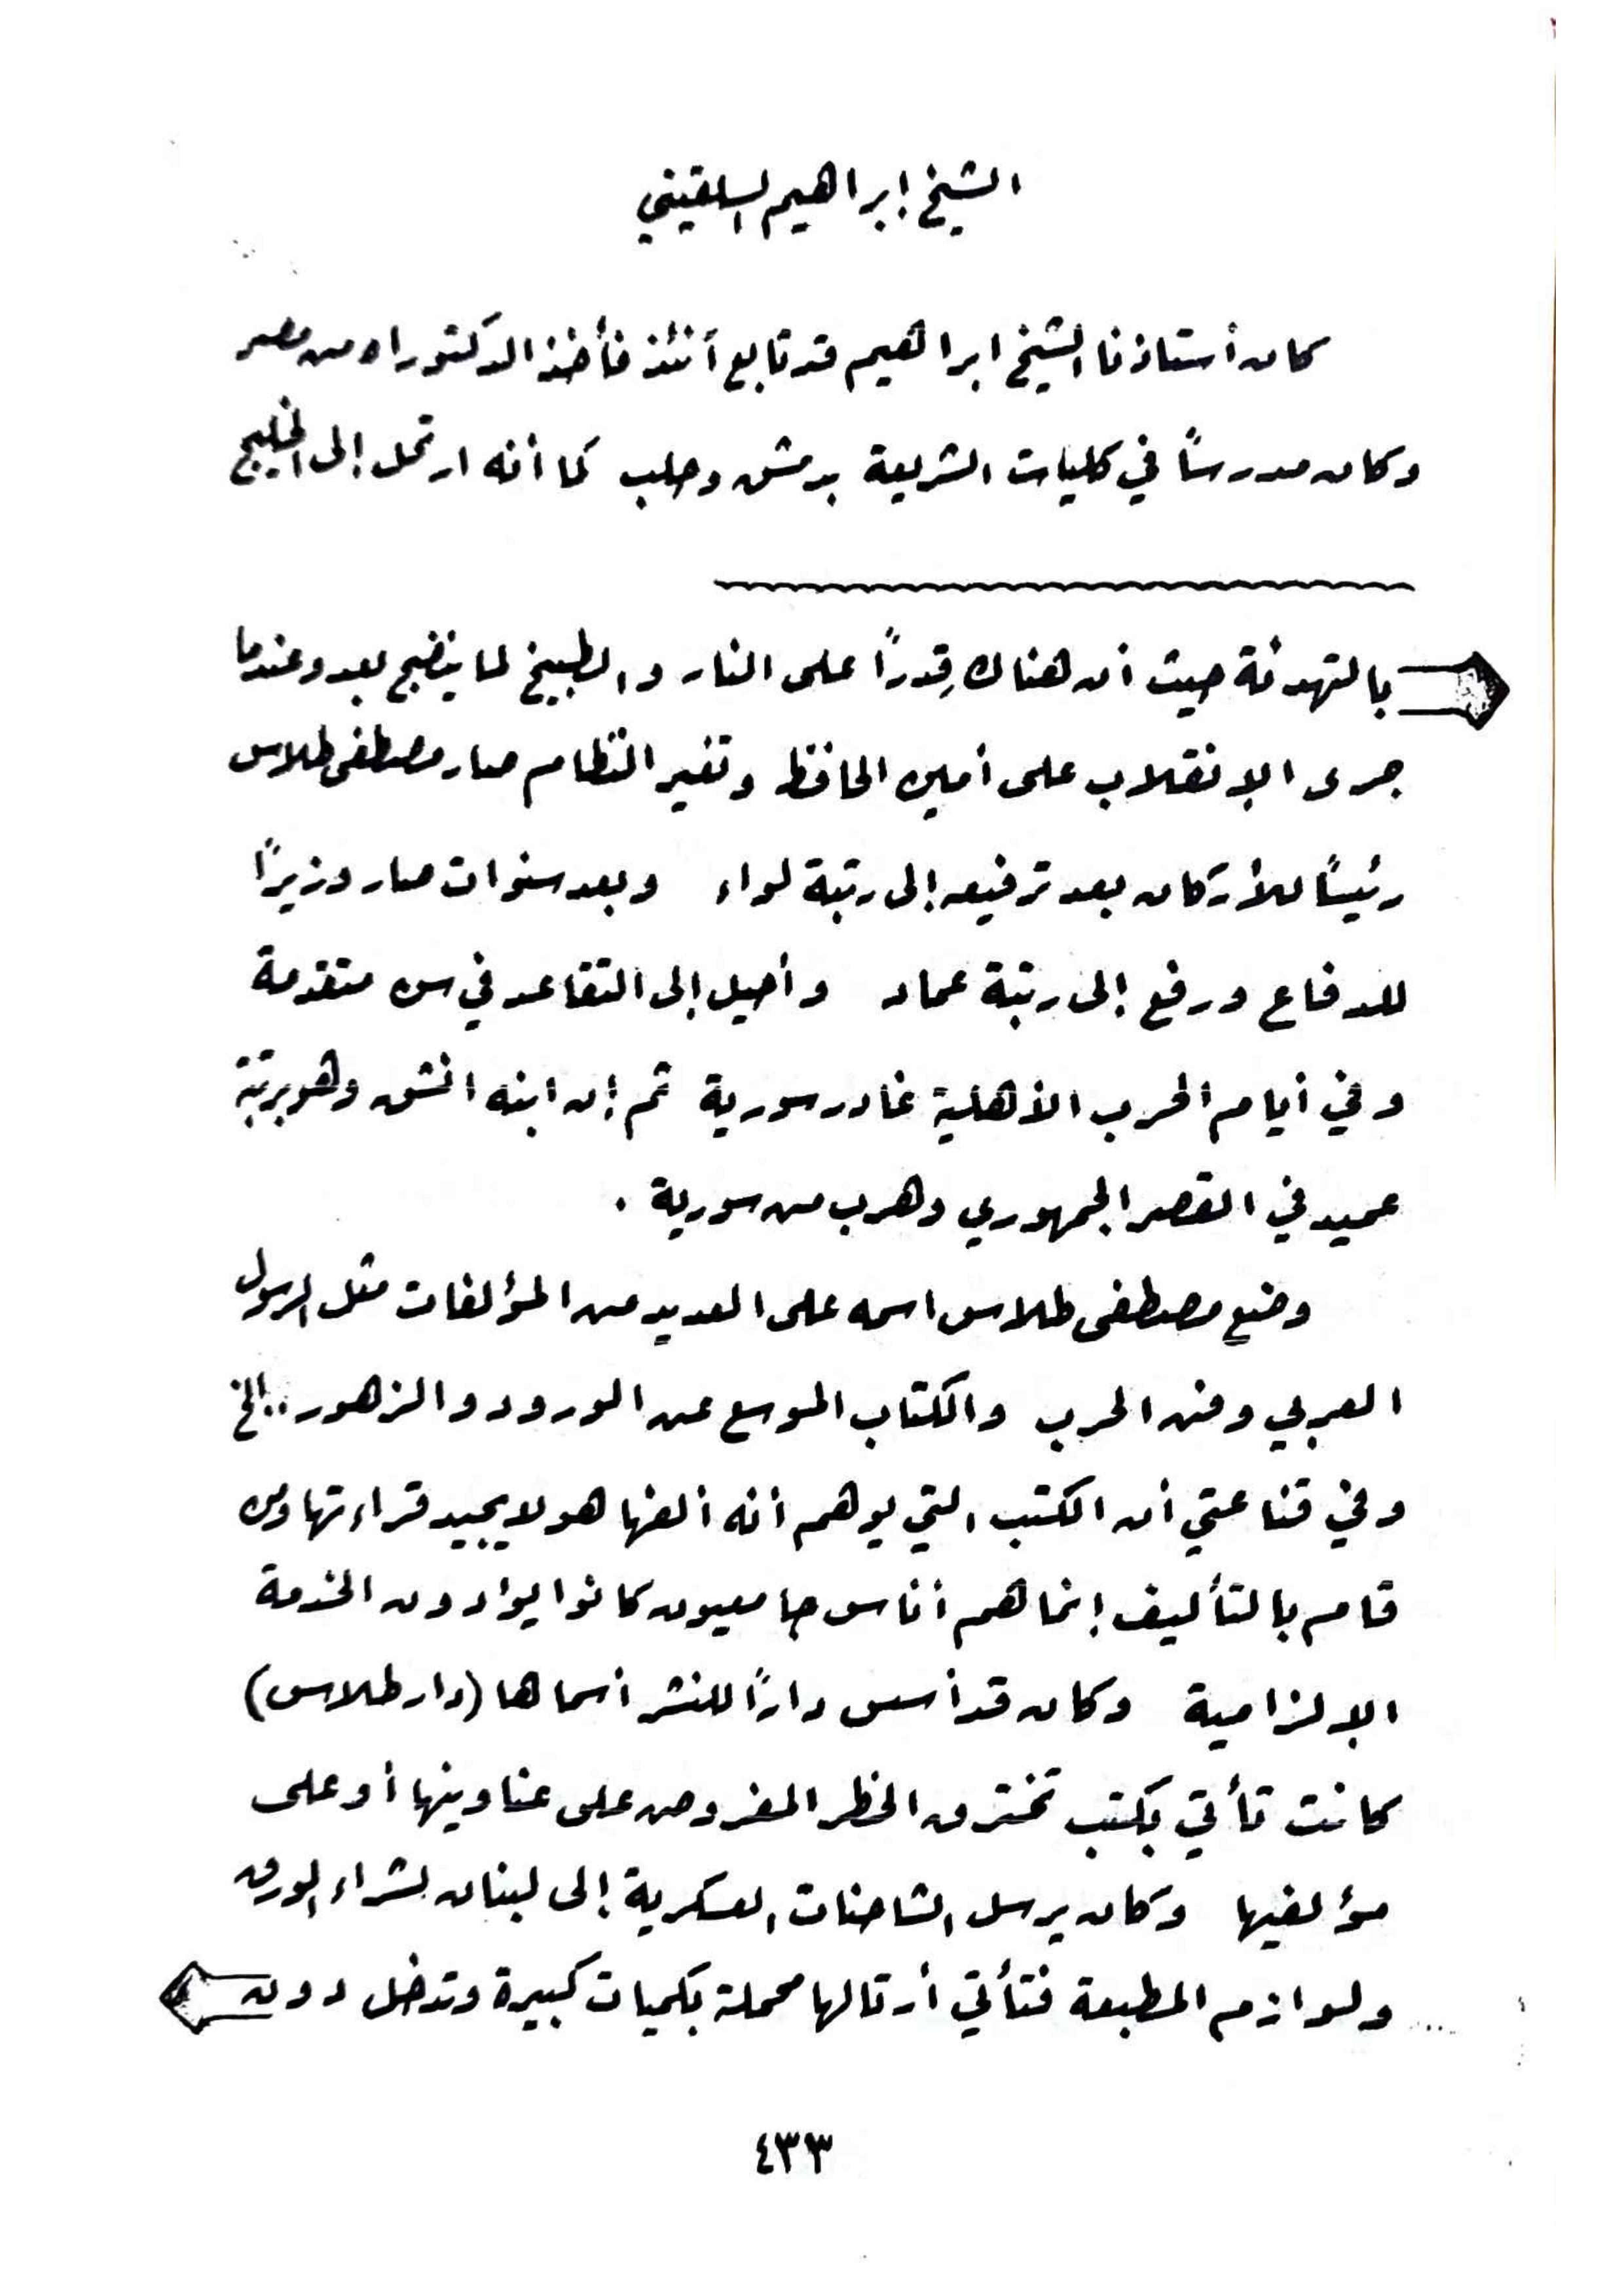 الشيخ إبراهيم السلقيني
كان أستاذنا الشيخ ابراهيم قد تابع أنئذ فأخذ الدكتوراه من مصر
وكان مدرساً في كليات الشريعة بدمشق وحلب كما أنه ارتحل إلى الخليج
بالتهدئة حيث أن هناك قِدراً على النار والطبيخ لما ينضج بعد وعندما
جرى الإنقلاب على أمين الحافظ وتغير النظام صار مصطفى طلاس
رئيساً للأركان بعد ترفيعه إلى رتبة لواء وبعد سنوات صار وزيراً
للدفاع ورفع إلى رتبة عماد وأحيل إلى التقاعد في سن متقدمة
وفي أيام الحرب الأهلية غادر سورية ثم إن ابنه انشق وهو برتبة
عميد في القصر الجمهوري وهرب من سورية .
وضع مصطفى طلاس اسمه على العديد من المؤلفات مثل الرسول
العربي وفن الحرب والكتاب الموسع عن الورود والزهور .. الخ
وفي قناعتي أن الكتب التي يوهم أنه ألفها هو لا يجيد قراءتها ومن
قام بالتأليف إنما هم أناس جامعيون كانوا يؤدون الخدمة
الإلزامية وكان قد أسس داراً للنشر أسماها (دار طلاس)
كانت تأتي بكتب تخترق الحظر المفروض على عناوينها أو على
مؤلفيها وكان يرسل الشاحنات العسكرية إلى لبنان لشراء الورق
ولوازم المطبعة فتأتي أرتالها محملة بكميات كبيرة وتدخل دون
٤٣٣